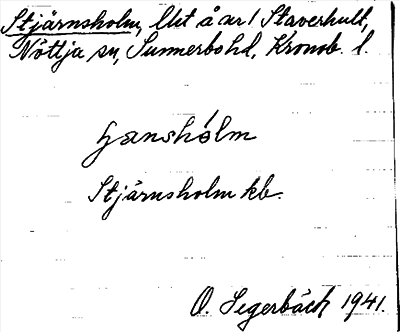 Stjärnsholm, lht å ar l Staverhult,
Nöttja sn, Sunnerbo hd, Kronob. l.
Stjärnsholm kb.
O. Segerbäck 1941.